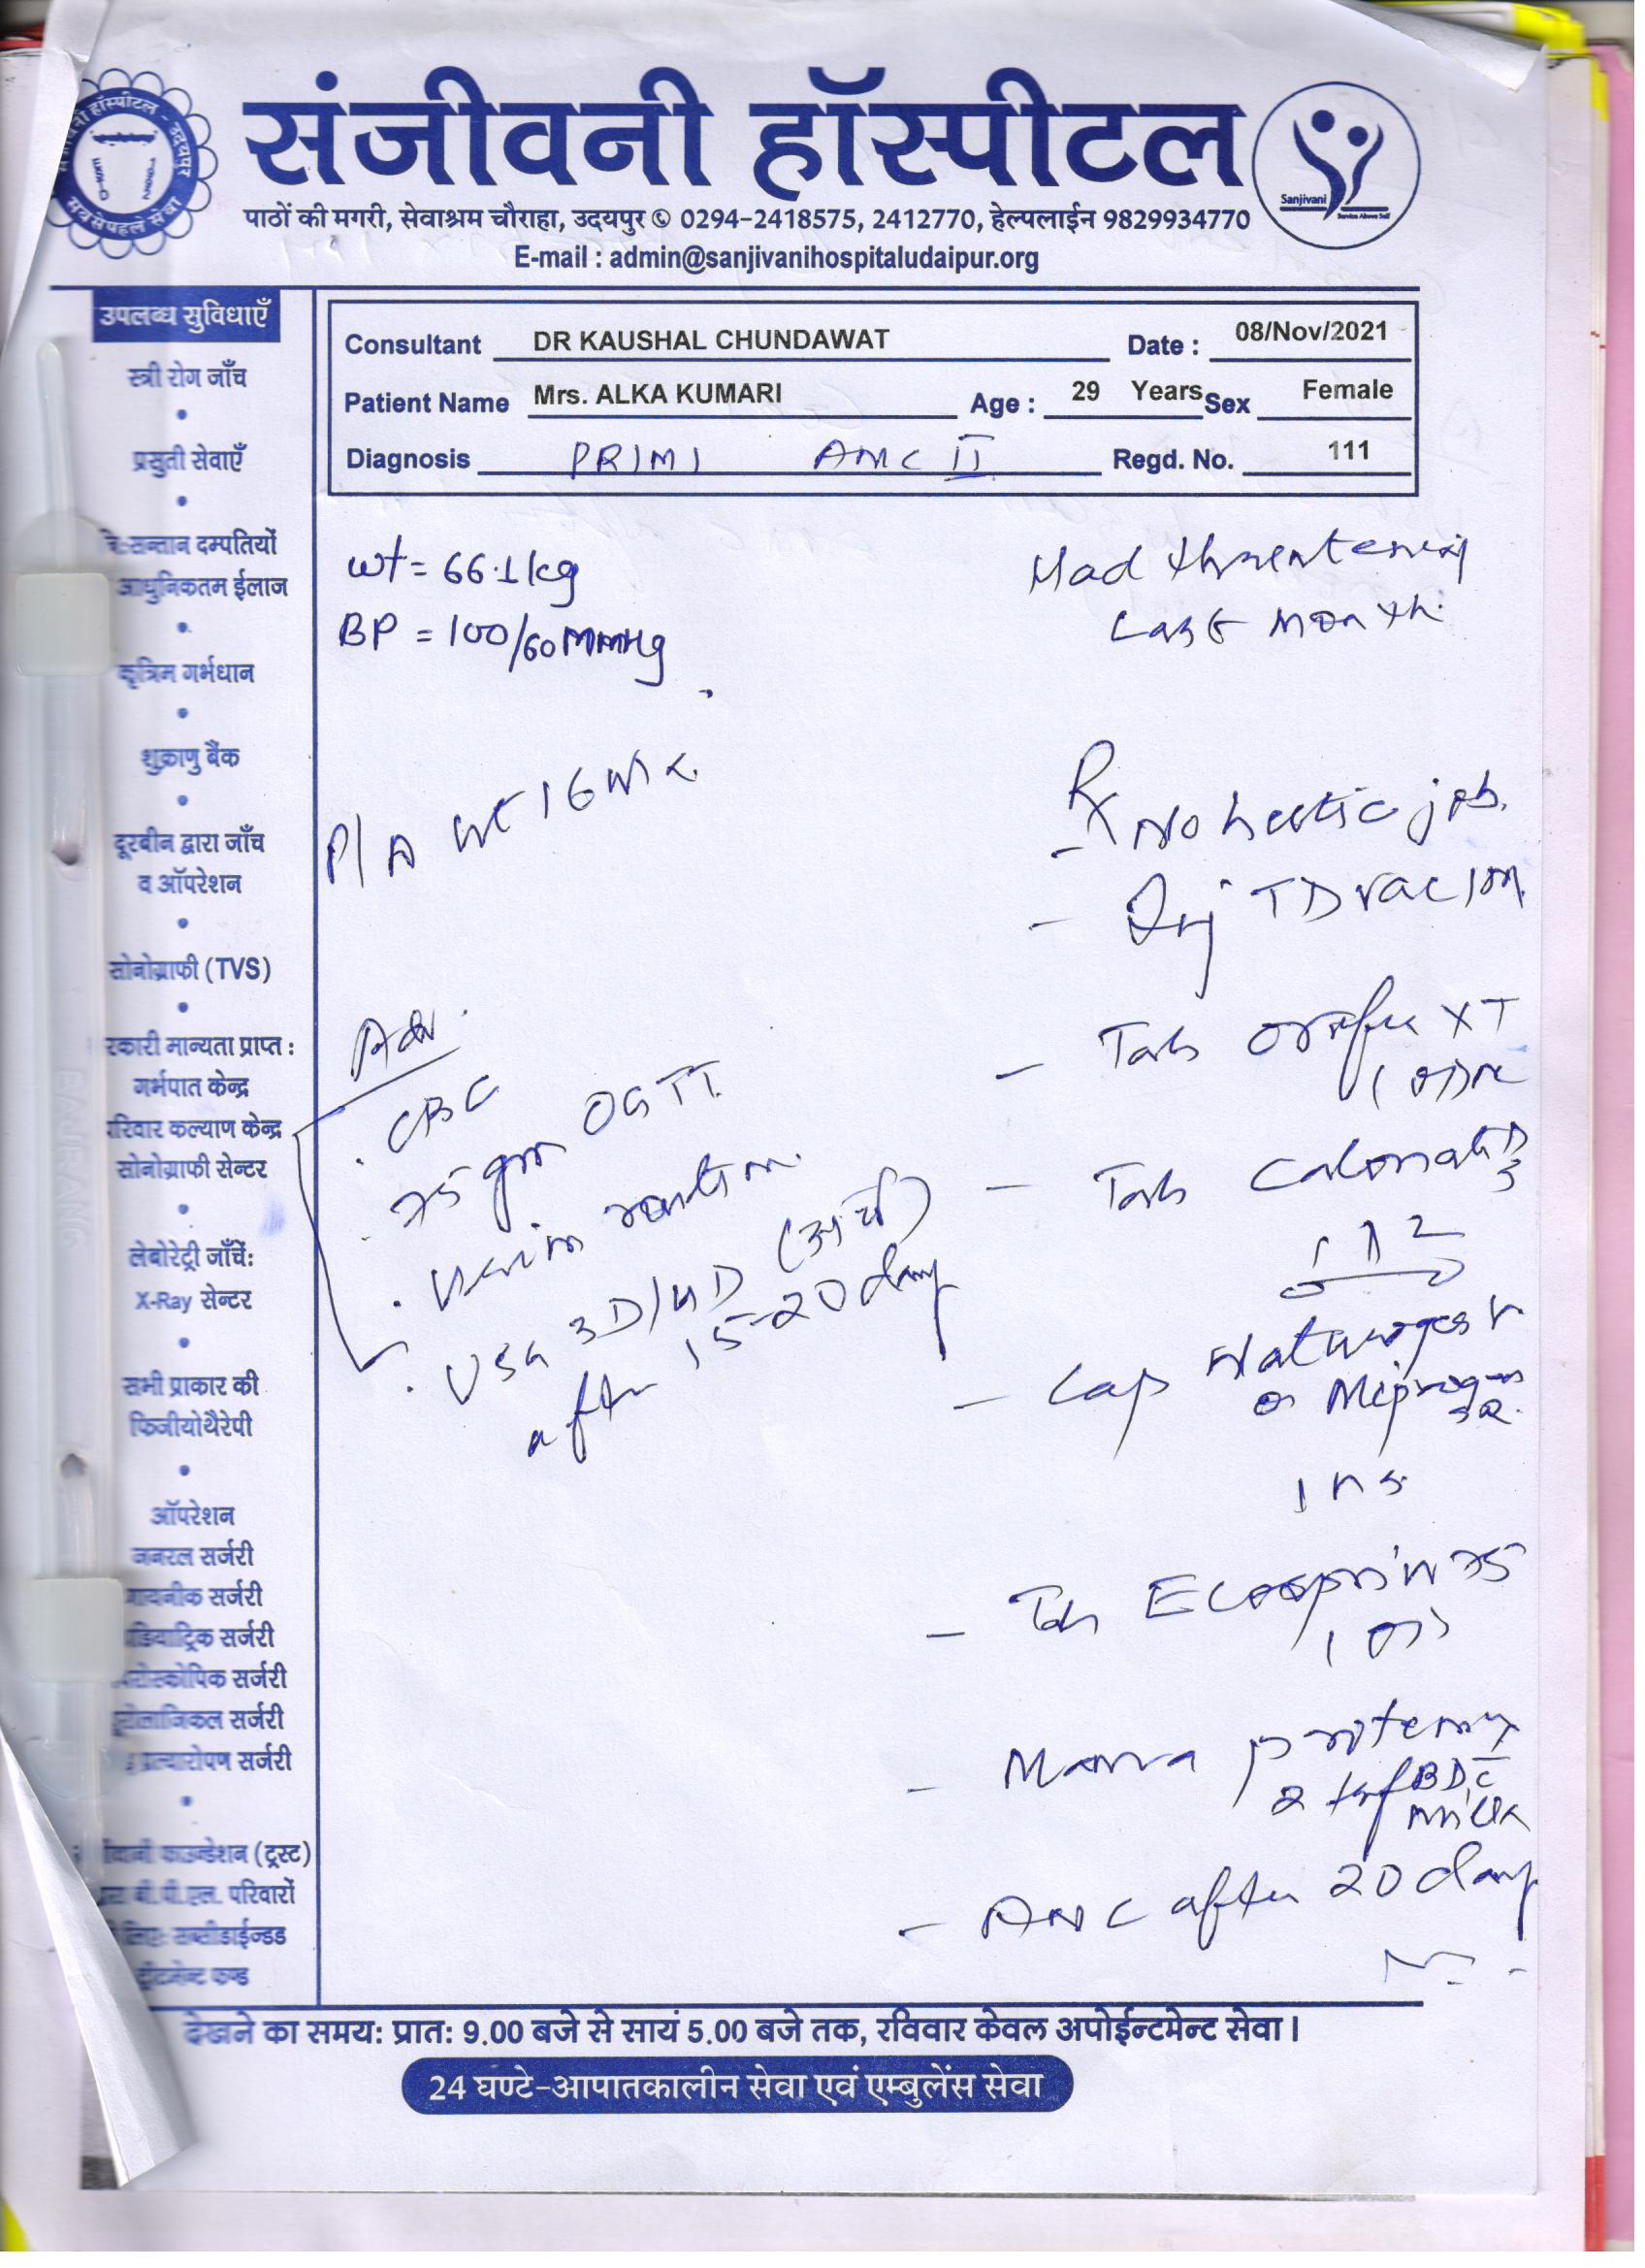 संजीवनी हॉस्पीटल
पाठों की मगरी, सेवाश्रम चौराहा, उदयपुर 0294-2418575, 2412770, हेल्पलाईन 9829934770
E-mail : admin@sanjivanihospitaludaipur.org
Sanjivani
Service Above Self
सबसे पहले सेवा
Consultant DR KAUSHAL CHUNDAWAT Date : 08/Nov/2021
Patient Name Mrs. ALKA KUMARI Age : 29 Years Sex Female
Diagnosis PRIMI ANC II Regd. No. 111
उपलब्ध सुविधाएँ
स्त्री रोग जाँच
प्रसुती सेवाएँ
सन्तान दम्पतियों
आधुनिकतम ईलाज
कृत्रिम गर्भधान
शुक्राणु बैंक
दूरबीन द्वारा जाँच
व ऑपरेशन
सोनोग्राफी (TVS)
रकारी मान्यता प्राप्त :
गर्भपात केन्द्र
परिवार कल्याण केन्द्र
सोनोग्राफी सेन्टर
लेबोरेट्री जाँचें:
X-Ray सेन्टर
सभी प्राकार की
फिजीयोथैरेपी
ऑपरेशन
जनरल सर्जरी
गायनीक सर्जरी
डियाट्रिक सर्जरी
रोस्कोपिक सर्जरी
सर्जरी
प्रत्यारोपण सर्जरी
फाउन्डेशन (ट्रस्ट)
बी.पी.एल. परिवारों
लिए सब्सीडाईज्डड
ट्रीटमेन्ट फण्ड
wt = 66.1kg
BP = 100/60mmHg
P/A ut 16wk
Adv.
. CBC
. 75gm OGTT
. Urine routine
. USG 3D/4D
after 15-20 day
Had threatening
Last month.
Rx
- No hectic job.
- Inj TD vac 1m
- Tab Orofer XT
1 OD
- Tab D3
- Cap Naturogest
or Miprogen
1 HS
- Tab Ecosprin 75
1 OD
- Mama protemix
2 tsf BD c
milk
- ANC after 20 day
देखने का समय: प्रात: 9.00 बजे से सायं 5.00 बजे तक, रविवार केवल अपोईन्टमेन्ट सेवा।
24 घण्टे-आपातकालीन सेवा एवं एम्बुलेंस सेवा